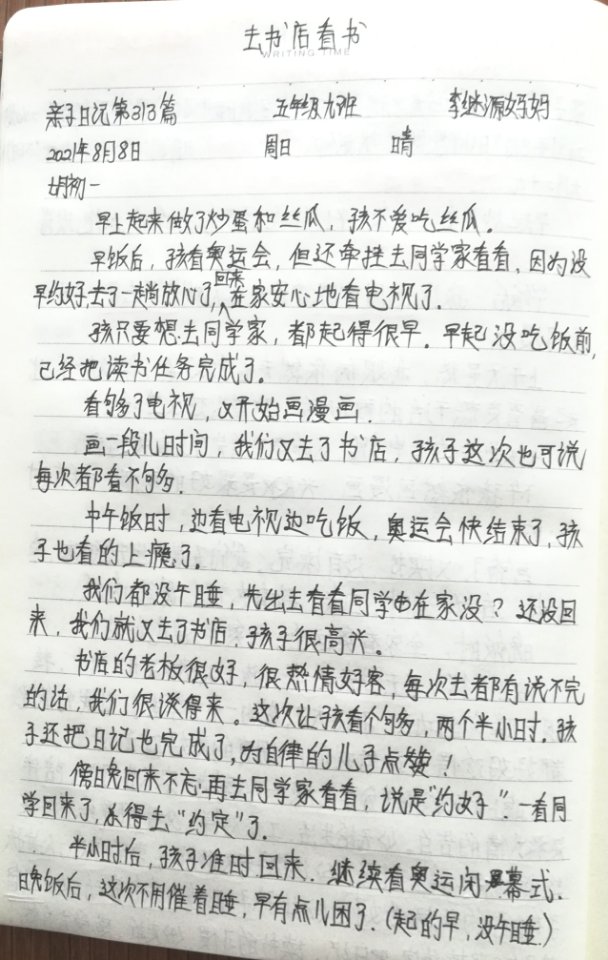 去书店看书
WRITING TIME
亲子日记第313篇 五年级九班 李继源妈妈
2021年8月8日 周日 晴
七月初一
早上起来做了炒蛋和丝瓜，孩不爱吃丝瓜。
早饭后，孩看奥运会，但还牵挂去同学家看看，因为没
早约好，去了一趟放心了，回来在家安心地看电视了。
孩只要想去同学家，都起得很早。早起没吃饭前，
已经把读书任务完成了。
看够了电视，又开始画漫画．
画一段儿时间，我们又去了书店，孩子这次也可说
每次都看不够．
中午饭时，边看电视边吃饭，奥运会快结束了，孩
子也看的上瘾了。
我们都没午睡，先出去看看同学在家没？还没回
来，我们就又去了书店．孩子很高兴。
书店的老板很好，很热情好客，每次去都有说不完
的话，我们很谈得来。这次让孩看个够，两个半小时．孩
子还把日记也完成了，为自律的儿子点赞！
傍晚回来不忘再去同学家看看，说是“约好”．一看同
学回来了，乐得去“约定”了．
半小时后，孩子准时回来．继续看奥运闭幕式．
晚饭后，这次不用催着睡，早有点儿困了．（起的早，没午睡．）